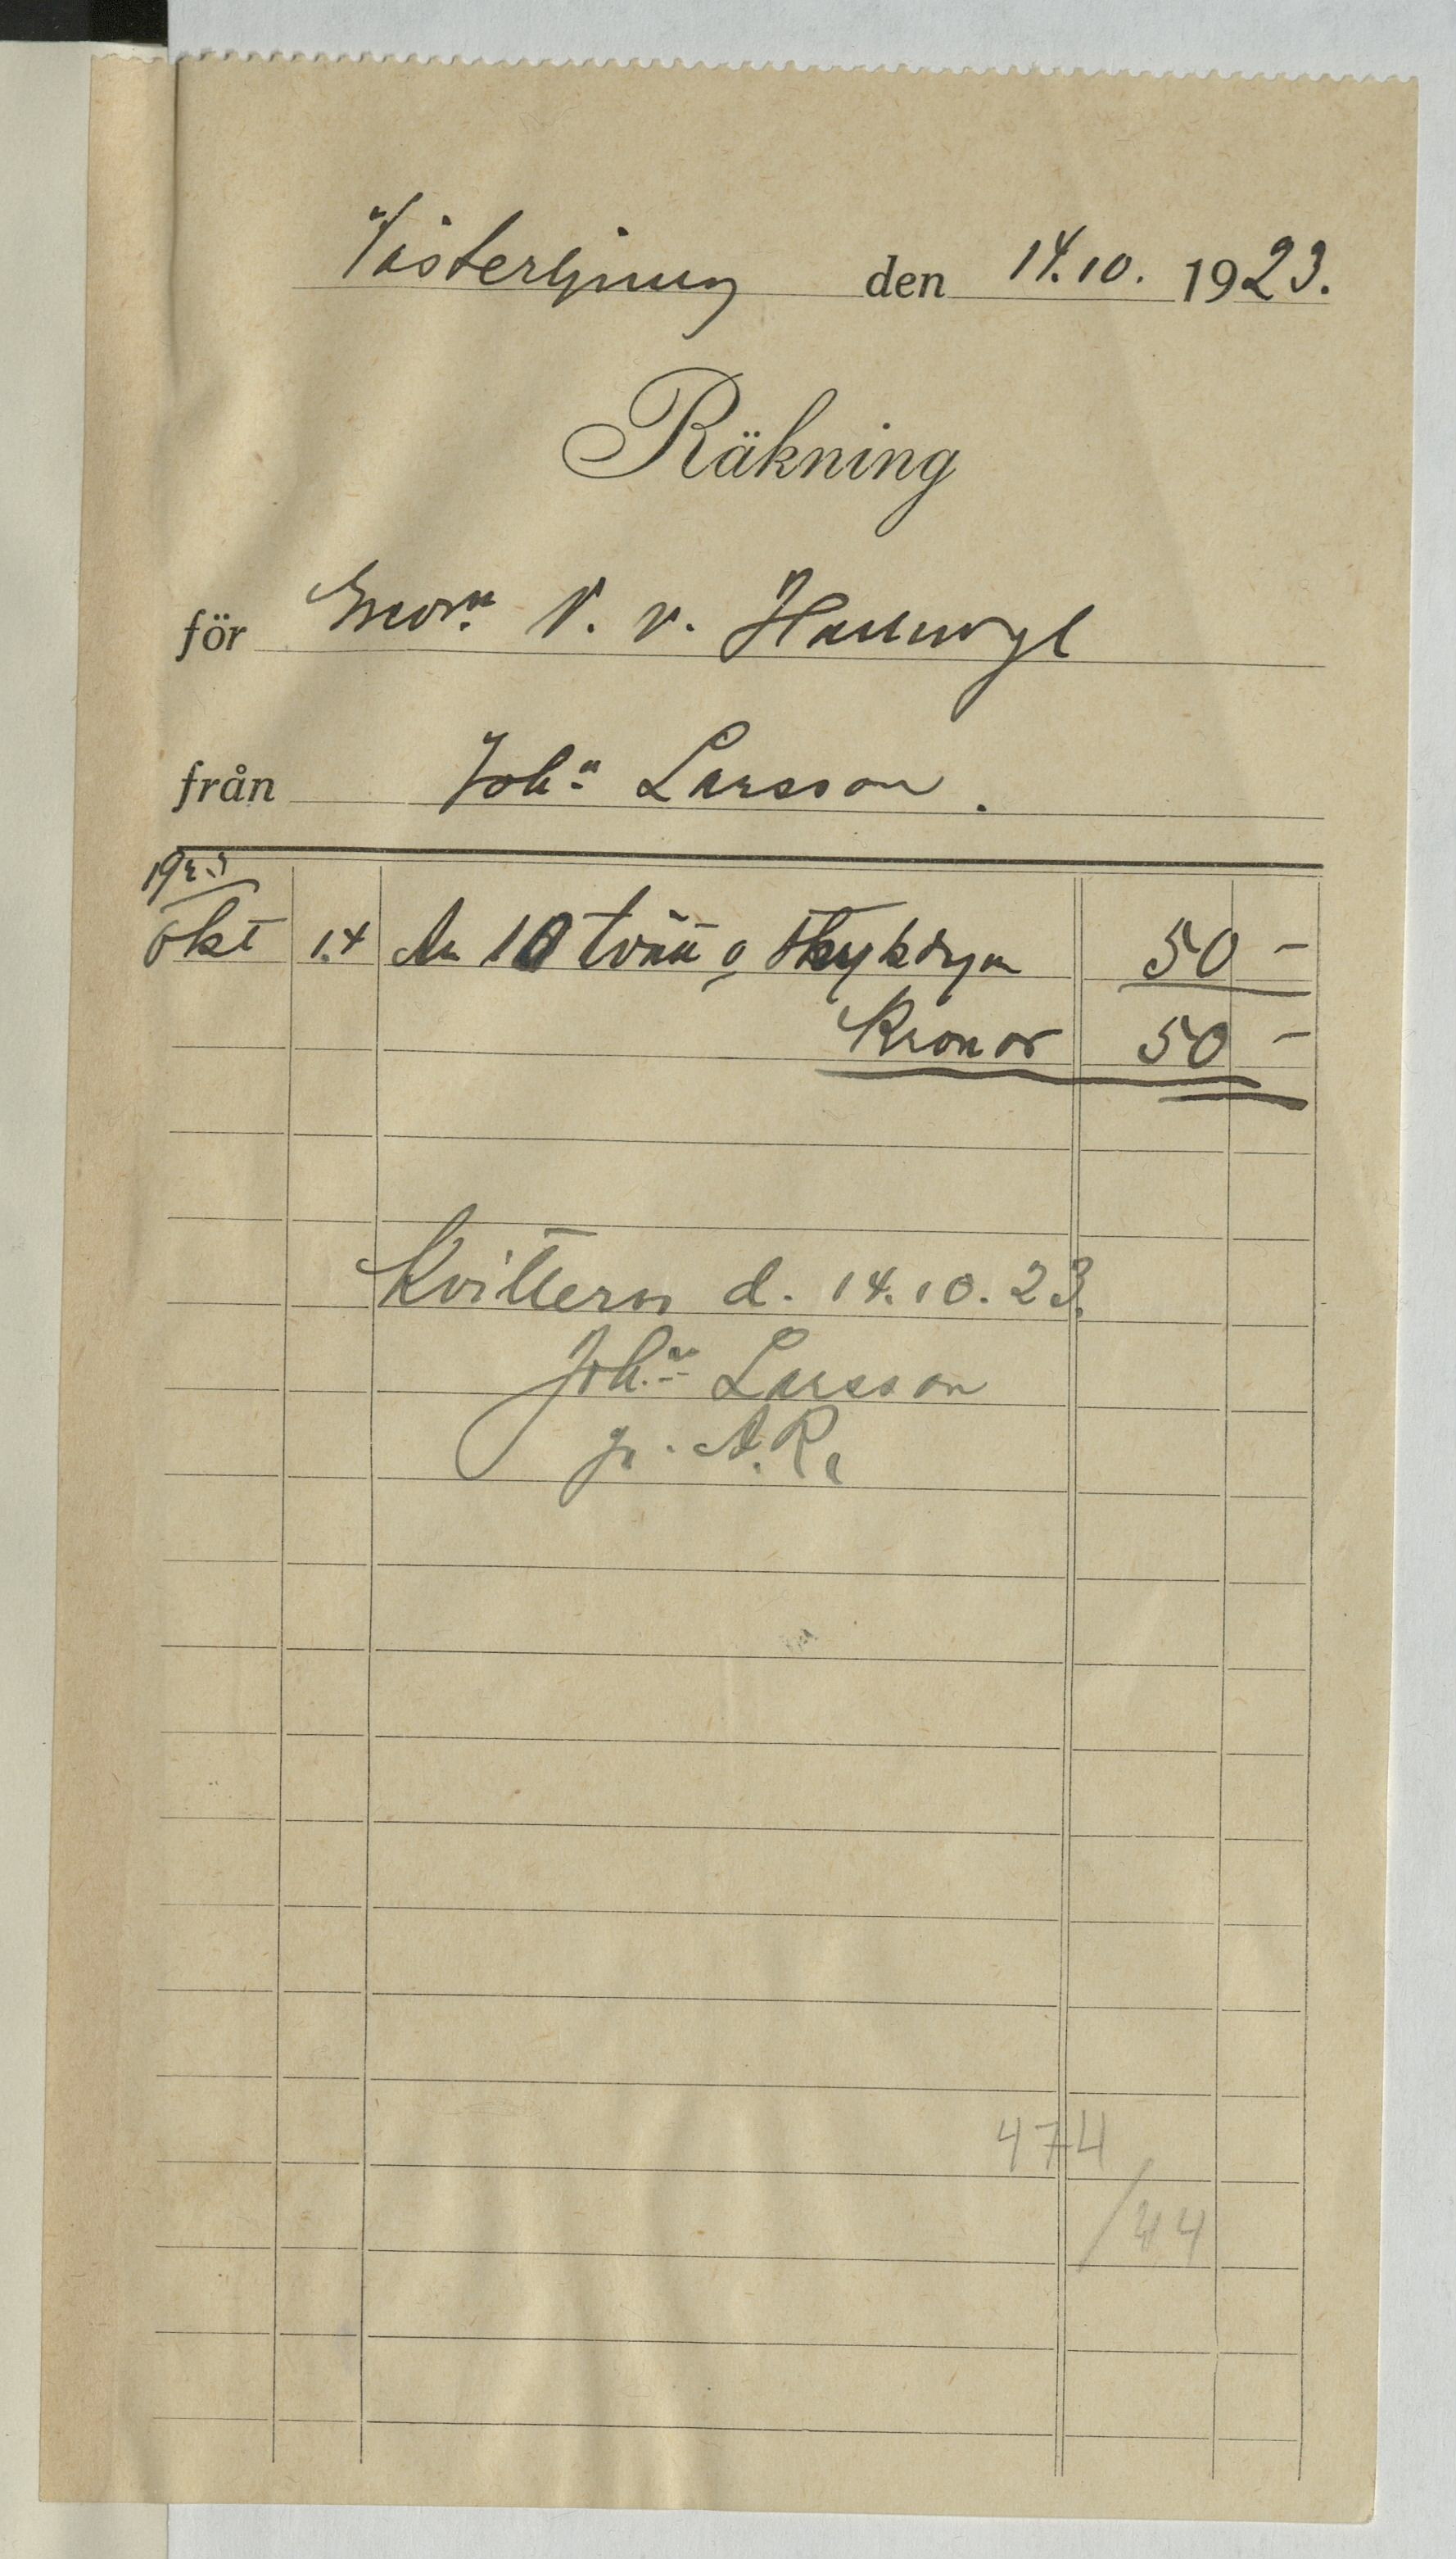 Västerljung den 14.10. 1923.
Räkning
för W. v. Hallwyl
från Joh:n Larsson.
1923
Okt 14 An 10 50 -
Kronor 50 -
Kvitteras d. 14.10.23.
Joh:n Larsson
g. A.R.
474
/44